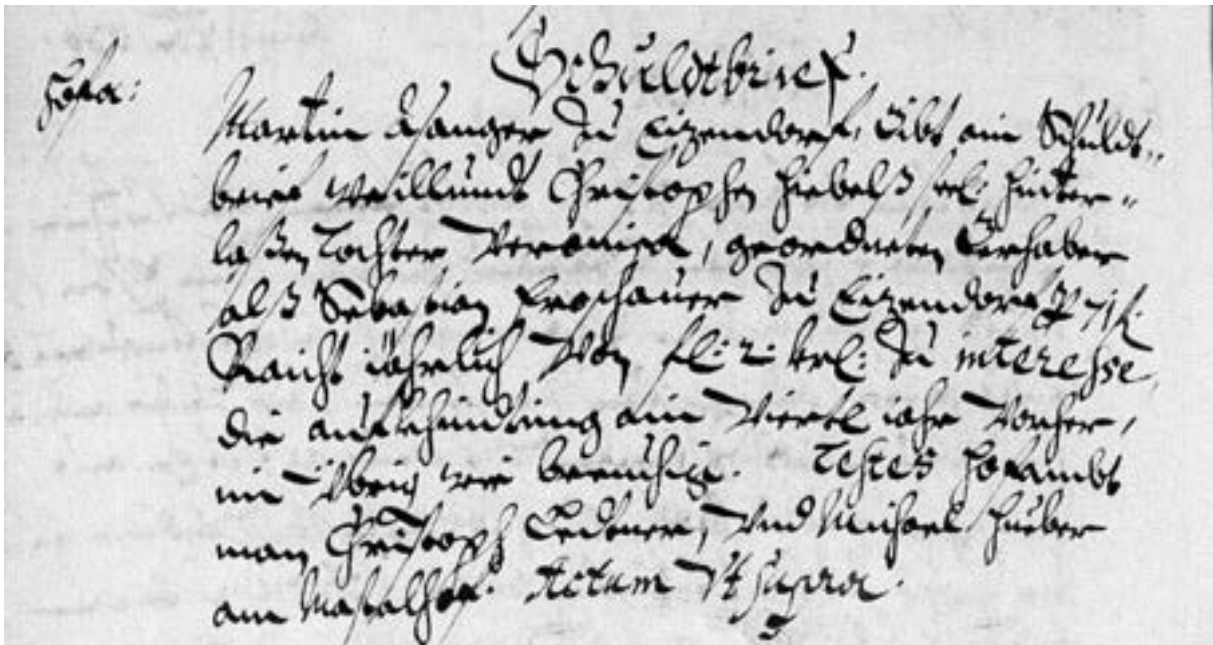 Schuldtbrief.
Hofa:
Martin Asanger zu Eitzendorf, Gibt ain Schuldt„
brief Weillundt Christophen Hiebelß seel: hinter„
laßen Tochter Veronica, geordneten Gerhaber
alß Sebastian Froschauer zu Eitzendorf P 71 f.
Raicht iährlich Von fl: 2: krl: zu interehse,
die aufkhindtung ain Viertl iahr Vorher,
im Ybrig wie breichig. Testes Hofambt
man Christoph Ledtner, Vnd Michael Hueber
am Mastalhof. Actum Vt Supra.